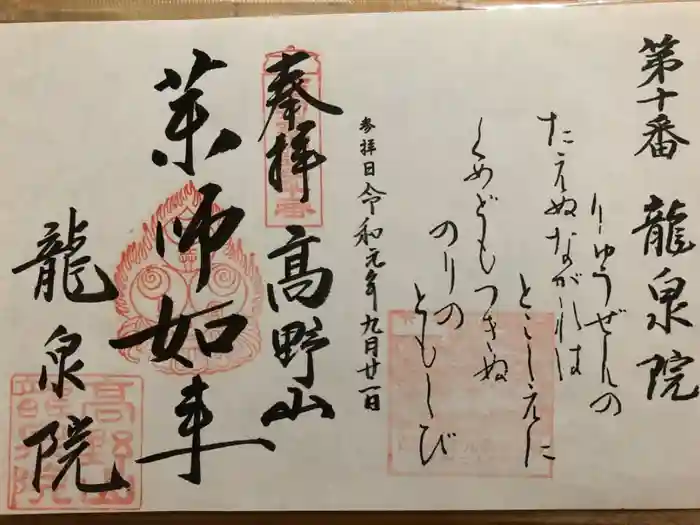 第十番 龍泉院
りゅうぜんの
たえぬながれは
とこしえに
くめどもつきぬ
のりの
ともしび
参拝日令和元年九月廿一日
奉拝 高野山
薬師如来
龍泉院